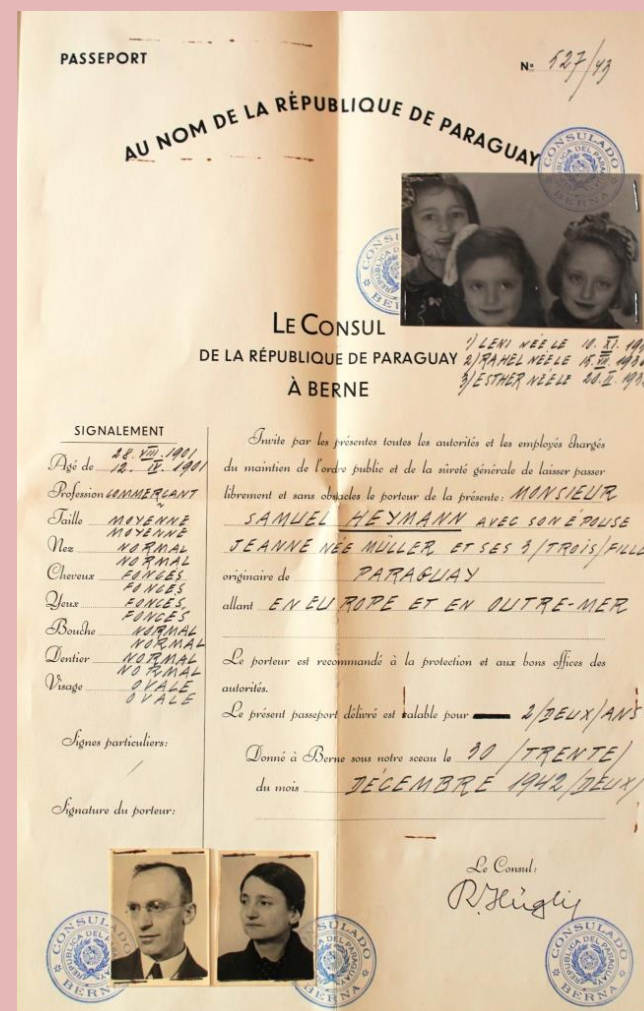 PASSEPORT
Nº 527/43
AU NOM DE LA RÉPUBLIQUE DE PARAGUAY
CONSULADO
REPUBLICA DEL
BERNA
LE CONSUL
DE LA RÉPUBLIQUE DE PARAGUAY
À BERNE
1) LENI NÉE LE 10. XI.
2) RAHEL NÉE LE 15. VII.
3) ESTHER NÉE LE 20. II.
SIGNALEMENT
28. VIII. 1901
Agé de 12. IV. 1901
Profession COMMERÇANT
Taille MOYENNE
MOYENNE
Nez NORMAL
NORMAL
Cheveux FONCÉS
FONCÉS
Yeux FONCÉS
FONCÉS
Bouche NORMAL
NORMAL
Dentier NORMAL
NORMAL
Visage OVALE
OVALE
Signes particuliers:
/
Signature du porteur:
Invite par les présentes toutes les autorités et les employés chargés
du maintien de l'ordre public et de la sûreté générale de laisser passer
librement et sans obstacles le porteur de la présente: MONSIEUR
SAMUEL HEYMANN AVEC SON ÉPOUSE
JEANNE NÉE MÜLLER ET SES 3/TROIS/FILLE
originaire de PARAGUAY
allant EN EUROPE ET EN OUTRE-MER
Le porteur est recommandé à la protection et aux bons offices des
autorités.
Le présent passeport délivré est valable pour 2/DEUX/ANS
Donné à Berne sous notre sceau le 30 /TRENTE/
du mois DÉCEMBRE 1942/DEUX/
Le Consul:
R. Hügli
CONSULADO
BERNA
CONSULADO
BERNA
CONSULADO
BERNA